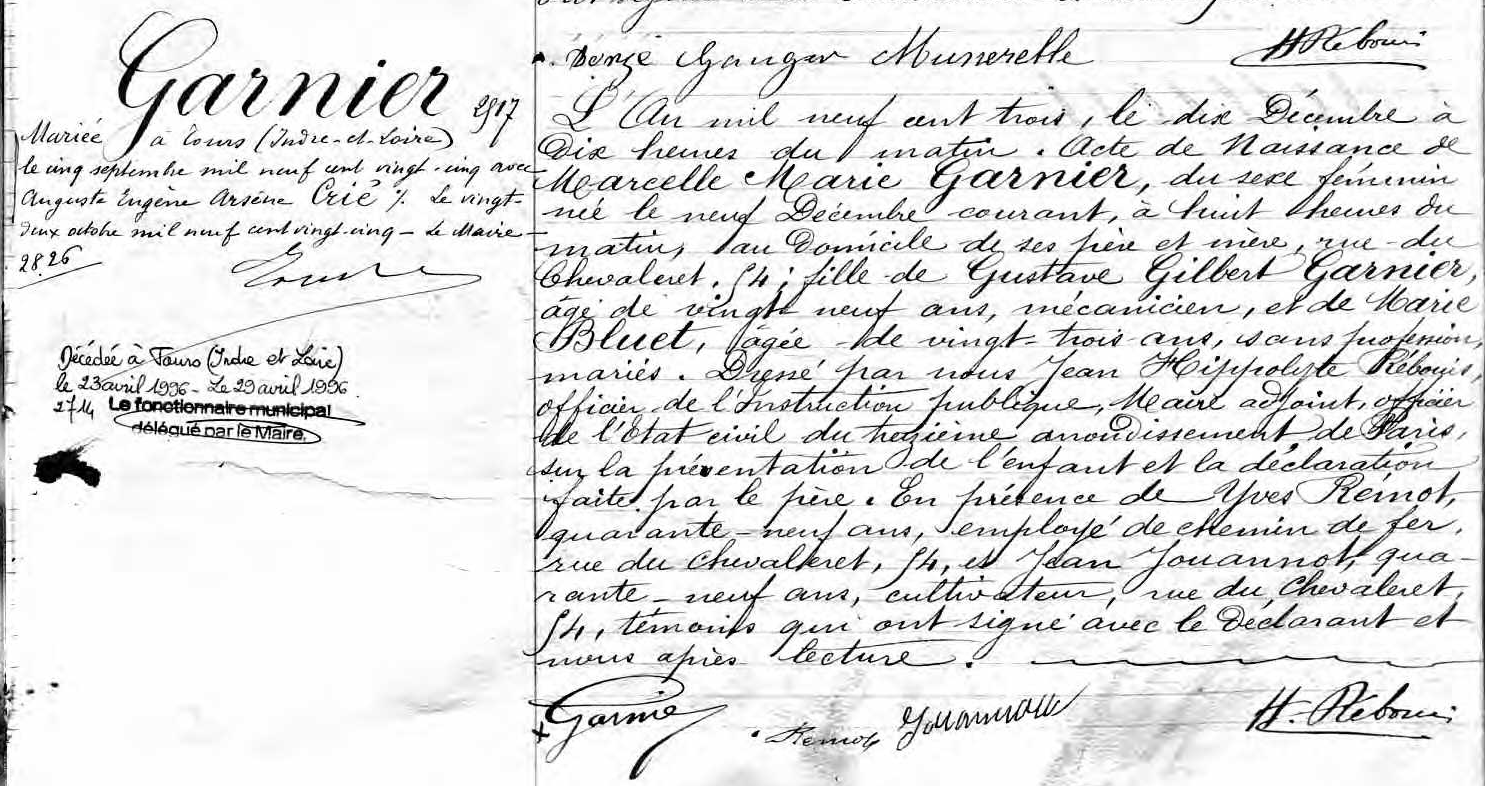 Donzé Gangar Musserelle
H Rébouis
Garnier
2917
Mariée à Tours (Indre-et-Loire)
le cinq septembre mil neuf cent vingt-cinq avec
Auguste Eugène Arsène Crié /. Le vingt-
deux octobre mil neuf cent vingt-cinq - Le Maire -
2826
Décédée à Tours (Indre et Loire)
le 23 avril 1996 - Le 29 avril 1996
2714 Le fonctionnaire municipal
délégué par le Maire.
L'An mil neuf cent trois, le dix Décembre à
Dix heures du matin. Acte de Naissance de
Marcelle Marie Garnier, du sexe féminin
née le neuf Décembre courant, à huit heures du
matin, au Domicile de ses père et mère, rue du
Chevaleret. 54; fille de Gustave Gilbert Garnier,
âgé de vingt neuf ans, mécanicien, et de Marie
Bluet, âgée de vingt-trois ans, sans profession,
mariés. Dressé par nous Jean Hippolyte Rébouis,
officier de l'Instruction publique, Maire adjoint, officier
de l'Etat civil du treizième arrondissement de Paris,
sur la présentation de l'enfant et la déclaration
faite par le père. En présence de Yves Rémot,
quarante-neuf ans, employé de chemin de fer,
rue du Chevaleret, 54, et Jean Jouannot, qua-
rante-neuf ans, cultivateur, rue du Chevaleret,
54, témoins qui ont signé avec le Déclarant et
nous après lecture.
Garnier
Remot
Jouannot
H. Rébouis